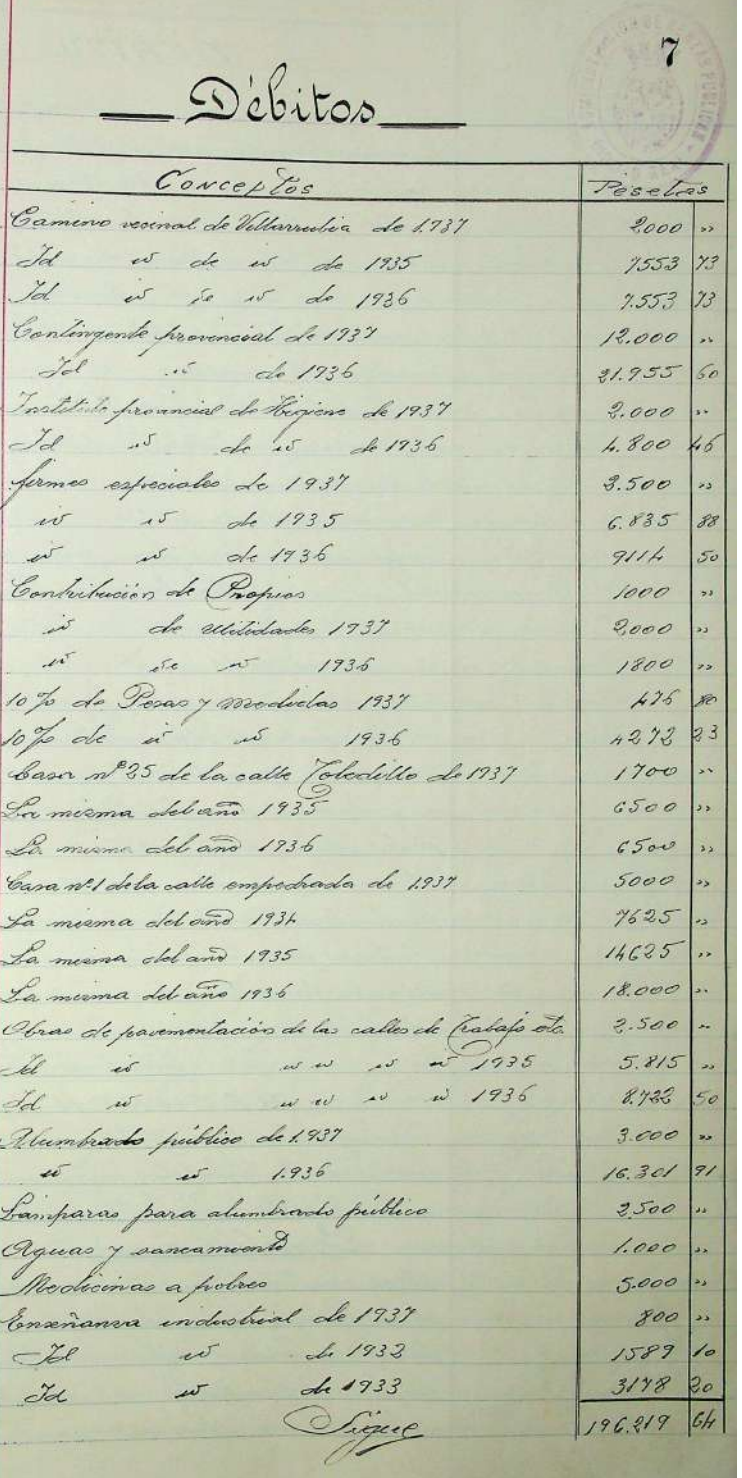 7
Débitos
Conceptos Pesetas
Camino vecinal de Villarrubia de 1.937 2000 "
Id id de id de 1935 7553 73
Id id de id de 1936 7.553 73
Contingente provincial de 1937 12.000 "
Id id de 1936 21.955 60
Instituto provincial de Higiene de 1937 2.000 "
Id id de id de 1936 4.800 46
firmes especiales de 1937 3.500 "
id id de 1935 6.835 88
id id de 1936 9114 50
Contribución de Propios 1000 "
id de utilidades 1937 2,000 "
id de id 1936 1800 "
10 % de Pesas y medidas 1937 476 80
10 % de id id 1936 4272 23
Casa nº 25 de la calle Toledillo de 1937 1700 "
La misma del año 1935 6500 "
La misma del año 1936 6500 "
Casa nº 1 de la calle empedrada de 1.937 5000 "
La misma del año 1934 7625 "
La misma del año 1935 14625 "
La misma del año 1936 18.000 "
Obras de pavimentación de las calles de Trabajo etc 2.500 "
Id id id id id id 1935 5.815 "
Id id id id id id 1936 8.722 50
Alumbrado público de 1.937 3.000 "
id id 1.936 16.301 91
Lamparas para alumbrado público 2,500 "
Aguas y saneamiento 1.000 "
Medicinas a pobres 5.000 "
Enseñanza industrial de 1937 800 "
Id id de 1932 1589 10
Id id de 1933 3178 20
Sigue 196.219 64